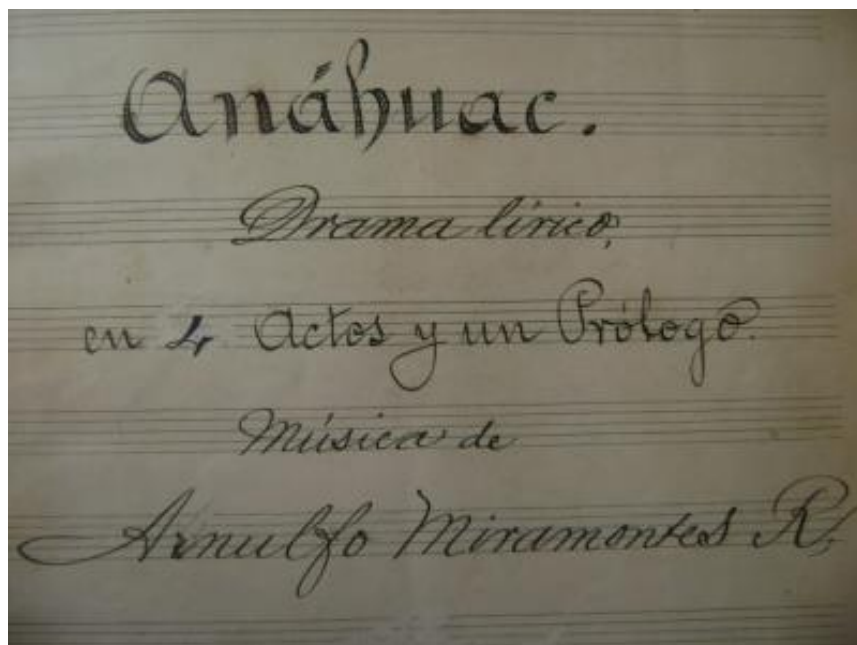 Anáhuac.
Drama lírico,
en 4 Actos y un Prólogo.
Música de
Arnulfo Miramontes R.